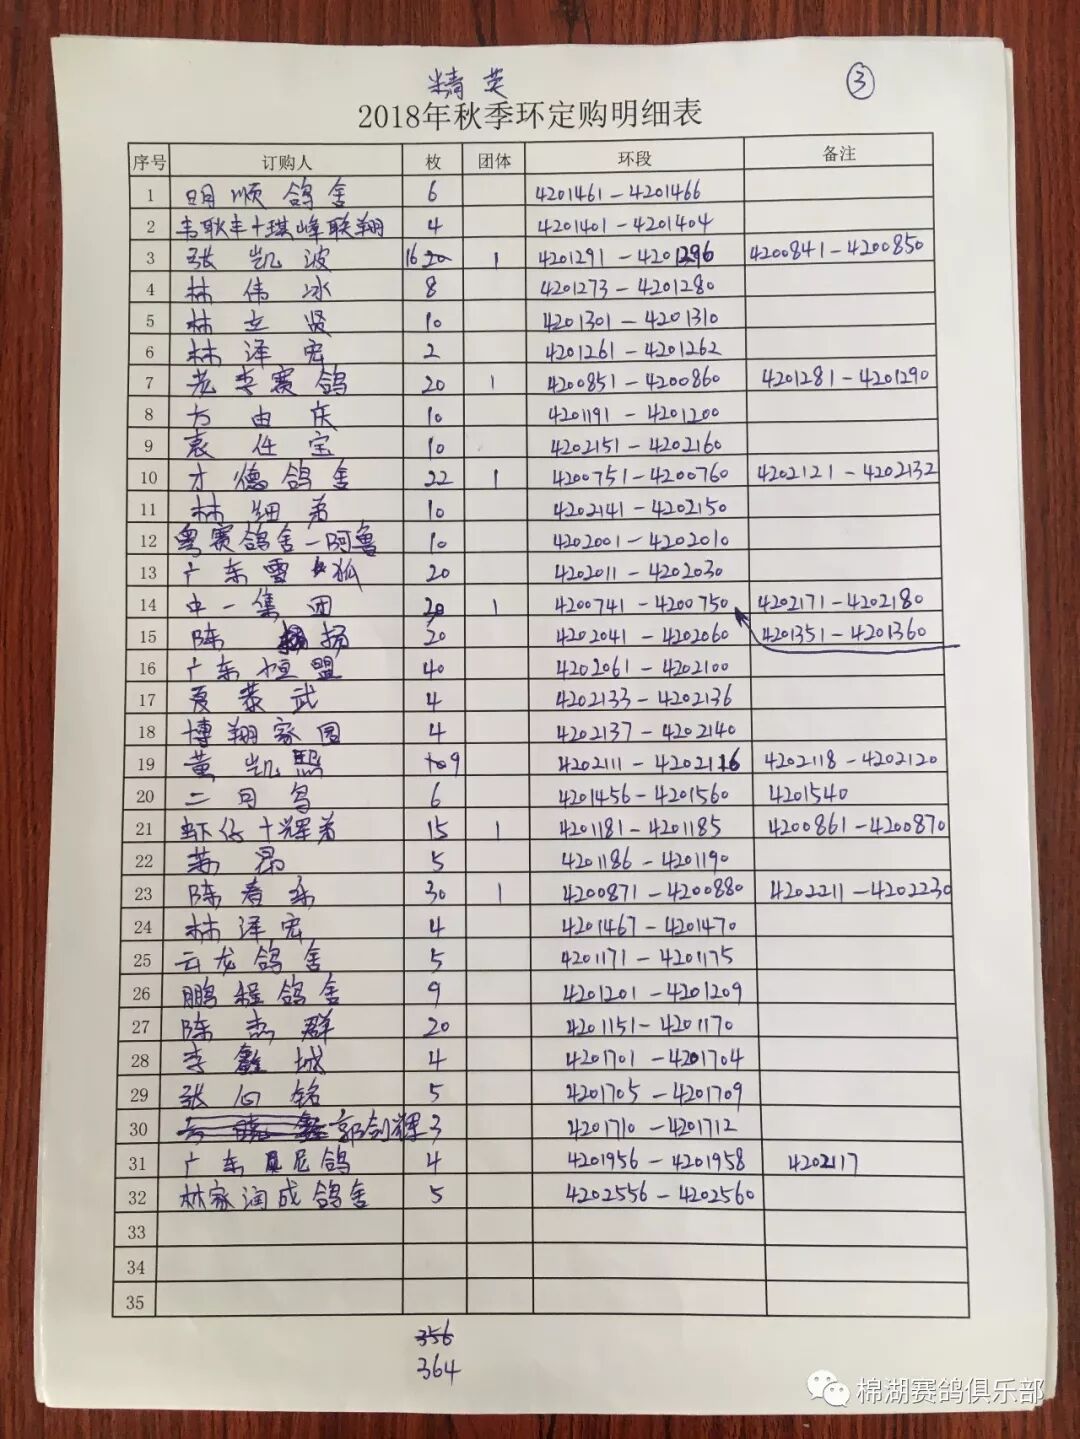 精英
③
2018年秋季环定购明细表
序号 订购人 枚 团体 环段 备注
1 明顺鸽舍 6 4201461-4201466
2 韦耿丰十琪峰联翔 4 4201401-4201404
3 张凯波 16 20 1 4201291-4201296 4200841-4200850
4 林伟冰 8 4201273-4201280
5 林立贤 10 4201301-4201310
6 林泽宏 2 4201261-4201262
7 老李赛鸽 20 1 4200851-4200860 4201281-4201290
8 方由庆 10 4201191-4201200
9 袁任宝 10 4202151-4202160
10 才德鸽舍 22 1 4200751-4200760 4202121-4202132
11 林细弟 10 4202141-4202150
12 粤赛鸽舍-阿鲁 10 4202001-4202010
13 广东雪狐 20 4202011-4202030
14 中一集团 1 4200741-4200750 4202171-4202180
15 陈扬 20 4202041-4202060 4201351-4201360
16 广东恒盟 40 4202061-4202100
17 泰武 4 4202133-4202136
18 博翔家园 4 4202137-4202140
19 黄凯熙 9 4202111-4202116 4202118-4202120
20 二月鸟 6 4201456-4201560 4201540
21 虾仔十辉弟 15 1 4201181-4201185 4200861-4200870
22 5 4201186-4201190
23 陈春 30 1 4200871-4200880 4202211-4202230
24 林泽宏 4 4201467-4201470
25 云龙鸽舍 5 4201171-4201175
26 鹏程鸽舍 9 4201201-4201209
27 陈杰群 20 4201151-4201170
28 李鑫城 4 4201701-4201704
29 张向铭 5 4201705-4201709
30 郭剑辉 3 4201710-4201712
31 广东贝尼鸽 4 4201956-4201958 4202117
32 林家润成鸽舍 5 4202556-4202560
33
34
35
356
364
棉湖赛鸽俱乐部